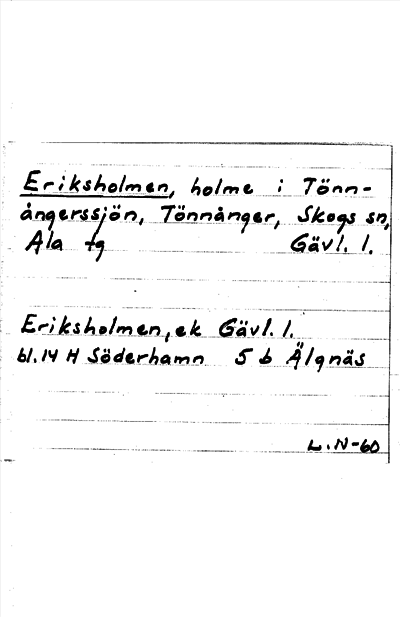 Eriksholmen, holme i Tönn-
ångerssjön, Tönnånger, Skogs sn,
Ala tg Gävl. l.
Eriksholmen, ek Gävl. l.
bl. 14 H Söderhamn 5 b Älgnäs
L.N-60